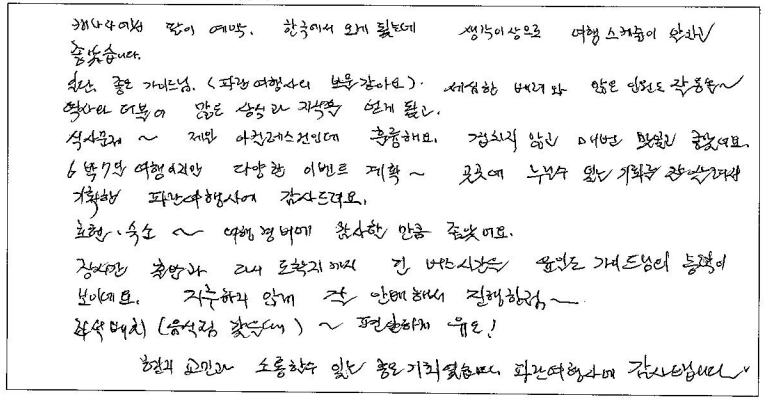 캐나다에서 많이 예약. 한국에서 오게 됐는데 생각이상으로 여행 스케줄이 알차고
좋았습니다.
일단, 좋은 가이드님. (파란여행사의 보물같아요). 세심한 배려와 많은 인원도
역사와 더불어 많은 상식과 지식을 얻게 됐고.
식사문제 ~ 제일 인데 훌륭해요. 겹치지 않고 매번 맛있고 좋았어요.
6박7일 여행이지만 다양한 이벤트 계획 ~ 곳곳에 누릴수 있는 기회를
기획한 파란여행사에 감사드려요.
호텔·숙소 ~ 여행경비에 감사한 만큼 좋았어요.
장시간 출발과 다시 도착지까지 긴 버스시간은 가이드님의 능력이
보이네요. 지루하지 않게 잘 안내해서 진행하심~
좌석배치 (음식점 갔을때) ~ 편안하게 유도!
현지 교민과 소통할수 있는 좋은 기회였습니다. 파란여행사에 감사드립니다~